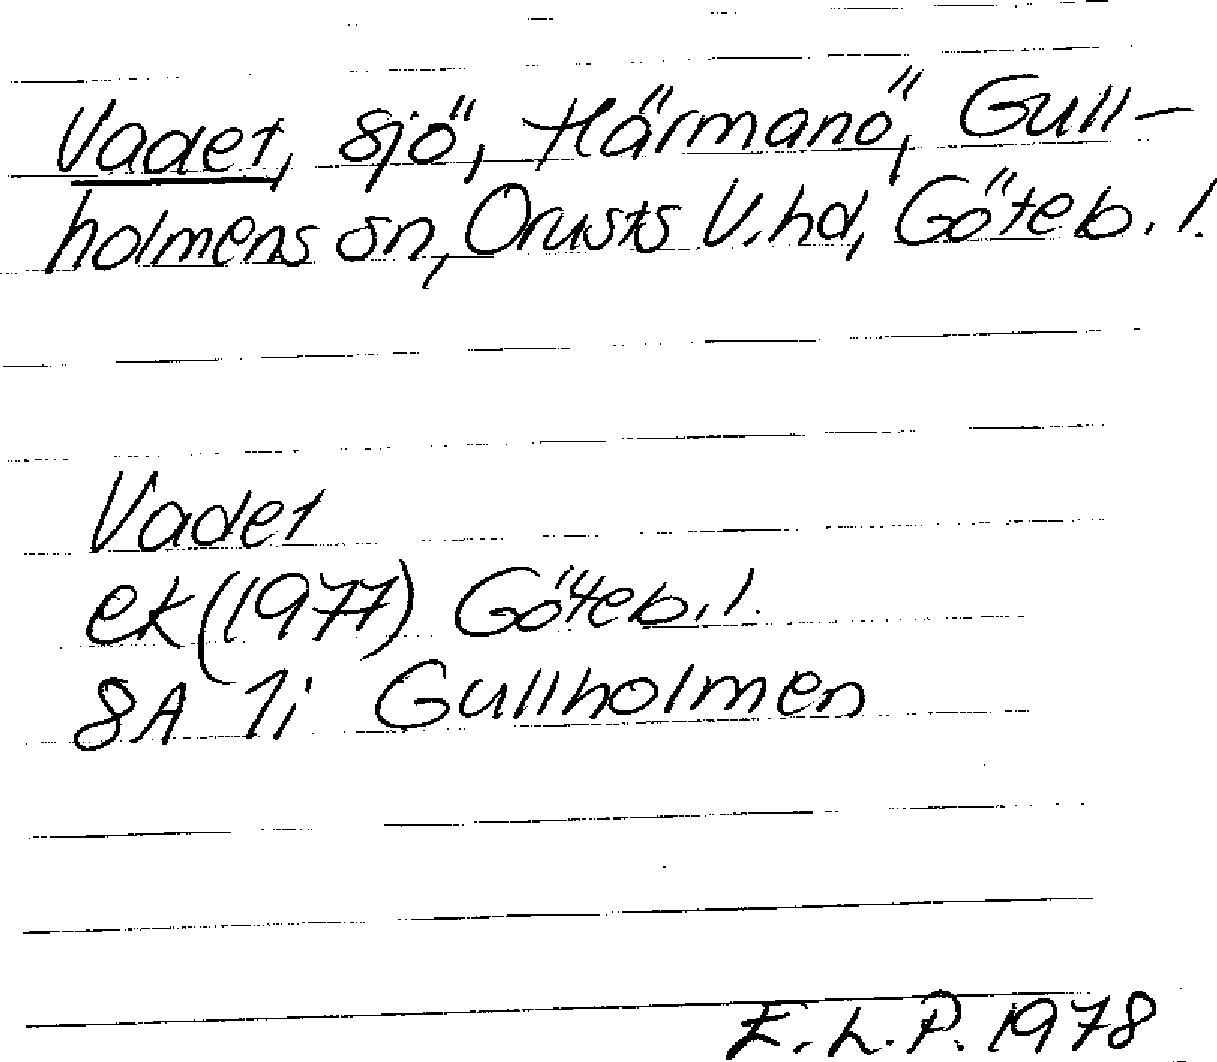 Vadet, sjö, Härmanö, Gull-
holmens sn, Orusts V. hd, Göteb. l.
Vadet
ek (1977) Göteb. l.
8A 7i Gullholmen
E. L. P. 1978